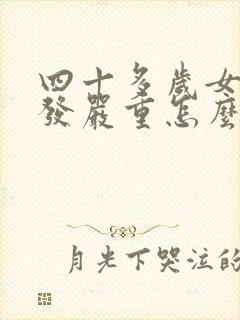 四十多歲女
發嚴重怎麼
月光下哭泣的